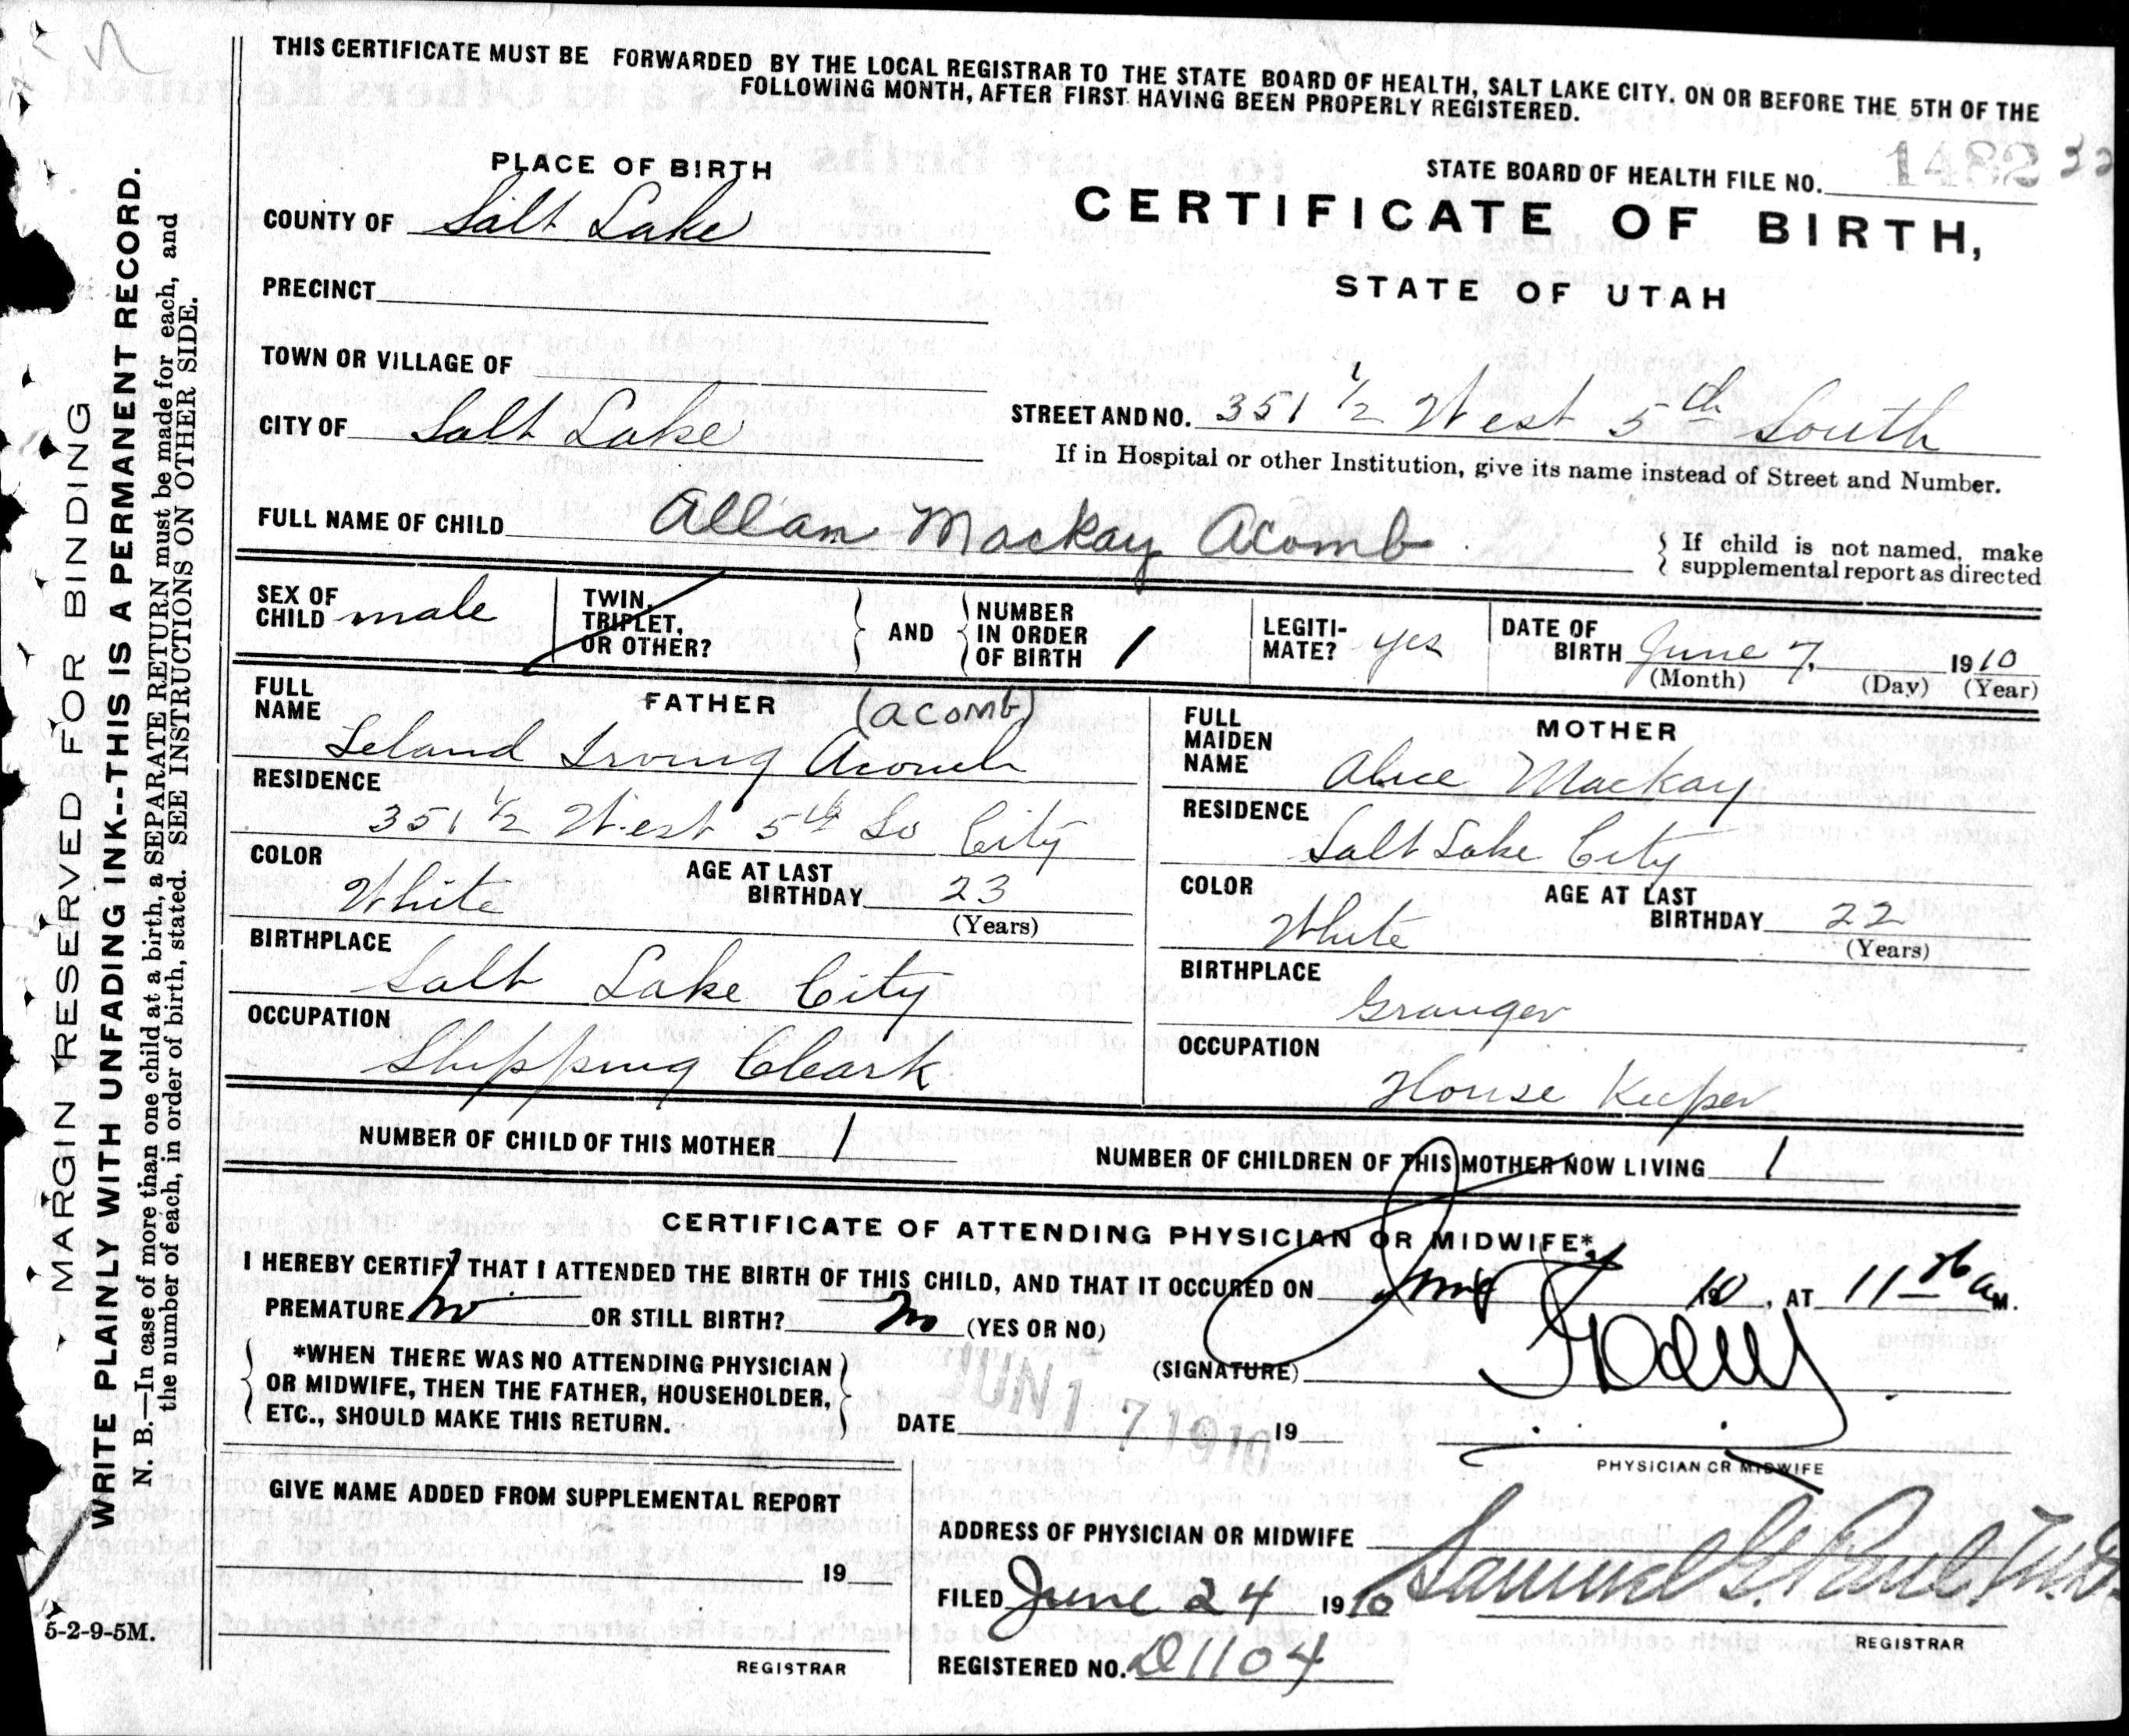 THIS CERTIFICATE MUST BE FORWARDED BY THE LOCAL REGISTRAR TO THE STATE BOARD OF HEALTH, SALT LAKE CITY. ON OR BEFORE THE 5TH OF THE
FOLLOWING MONTH, AFTER FIRST HAVING BEEN PROPERLY REGISTERED.
MARGIN RESERVED FOR BINDING
WRITE PLAINLY WITH UNFADING INK--THIS IS A PERMANENT RECORD.
N. B.—In case of more than one child at a birth, a SEPARATE RETURN must be made for each, and
the number of each, in order of birth, stated. SEE INSTRUCTIONS ON OTHER SIDE.
5-2-9-5M.
PLACE OF BIRTH
STATE BOARD OF HEALTH FILE NO. 1482
CERTIFICATE OF BIRTH,
STATE OF UTAH
COUNTY OF Salt Lake
PRECINCT
TOWN OR VILLAGE OF
CITY OF Salt Lake
STREET AND NO. 351 1/2 West 5th South
If in Hospital or other Institution, give its name instead of Street and Number.
FULL NAME OF CHILD Allan Mackay Acomb
If child is not named, make
supplemental report as directed
SEX OF CHILD male
TWIN, TRIPLET, OR OTHER?
AND
NUMBER IN ORDER OF BIRTH 1
LEGITI-MATE? yes
DATE OF BIRTH June 7, 1910
(Month) (Day) (Year)
FATHER (acomb)
FULL NAME Leland Irving Acomb
RESIDENCE
351 1/2 West 5th So City
COLOR White
AGE AT LAST BIRTHDAY 23
(Years)
BIRTHPLACE
Salt Lake City
OCCUPATION
Shipping Cleark
MOTHER
FULL MAIDEN NAME Alice Mackay
RESIDENCE
Salt Lake City
COLOR White
AGE AT LAST BIRTHDAY 22
(Years)
BIRTHPLACE
Granger
OCCUPATION
House Keeper
NUMBER OF CHILD OF THIS MOTHER 1
NUMBER OF CHILDREN OF THIS MOTHER NOW LIVING 1
CERTIFICATE OF ATTENDING PHYSICIAN OR MIDWIFE*
I HEREBY CERTIFY THAT I ATTENDED THE BIRTH OF THIS CHILD, AND THAT IT OCCURED ON June 10, AT 11 a M.
PREMATURE no OR STILL BIRTH? no (YES OR NO)
*WHEN THERE WAS NO ATTENDING PHYSICIAN
OR MIDWIFE, THEN THE FATHER, HOUSEHOLDER,
ETC., SHOULD MAKE THIS RETURN.
(SIGNATURE)
DATE JUN 17 1910 19
PHYSICIAN OR MIDWIFE
GIVE NAME ADDED FROM SUPPLEMENTAL REPORT
19
REGISTRAR
ADDRESS OF PHYSICIAN OR MIDWIFE
FILED June 24 1910 Samuel G. Paul, M.D.
REGISTRAR
REGISTERED NO. D1104